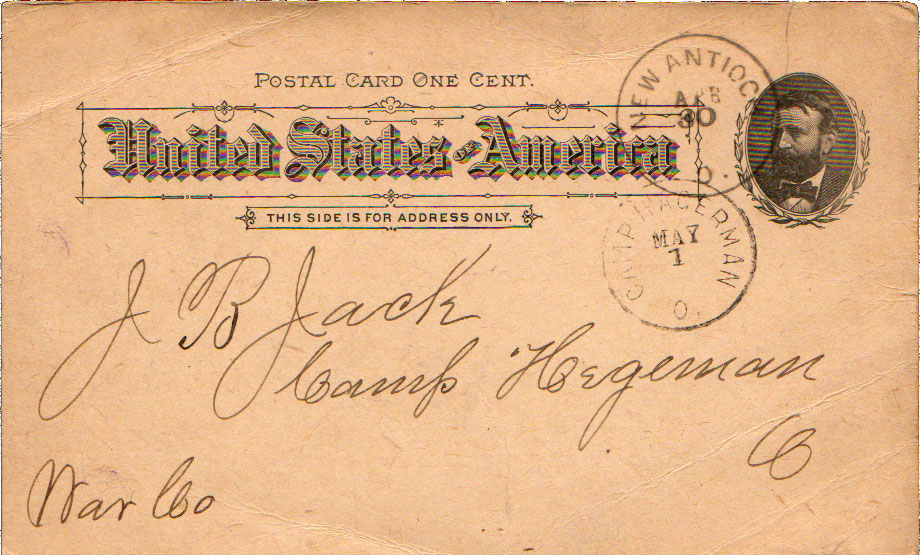 POSTAL CARD ONE CENT.
United States OF America
THIS SIDE IS FOR ADDRESS ONLY.
NEW ANTIOCH
APR
30
O.
CAMP HAGERMAN
MAY
1
O.
J B Jack
Camp Hegeman
O
War Co